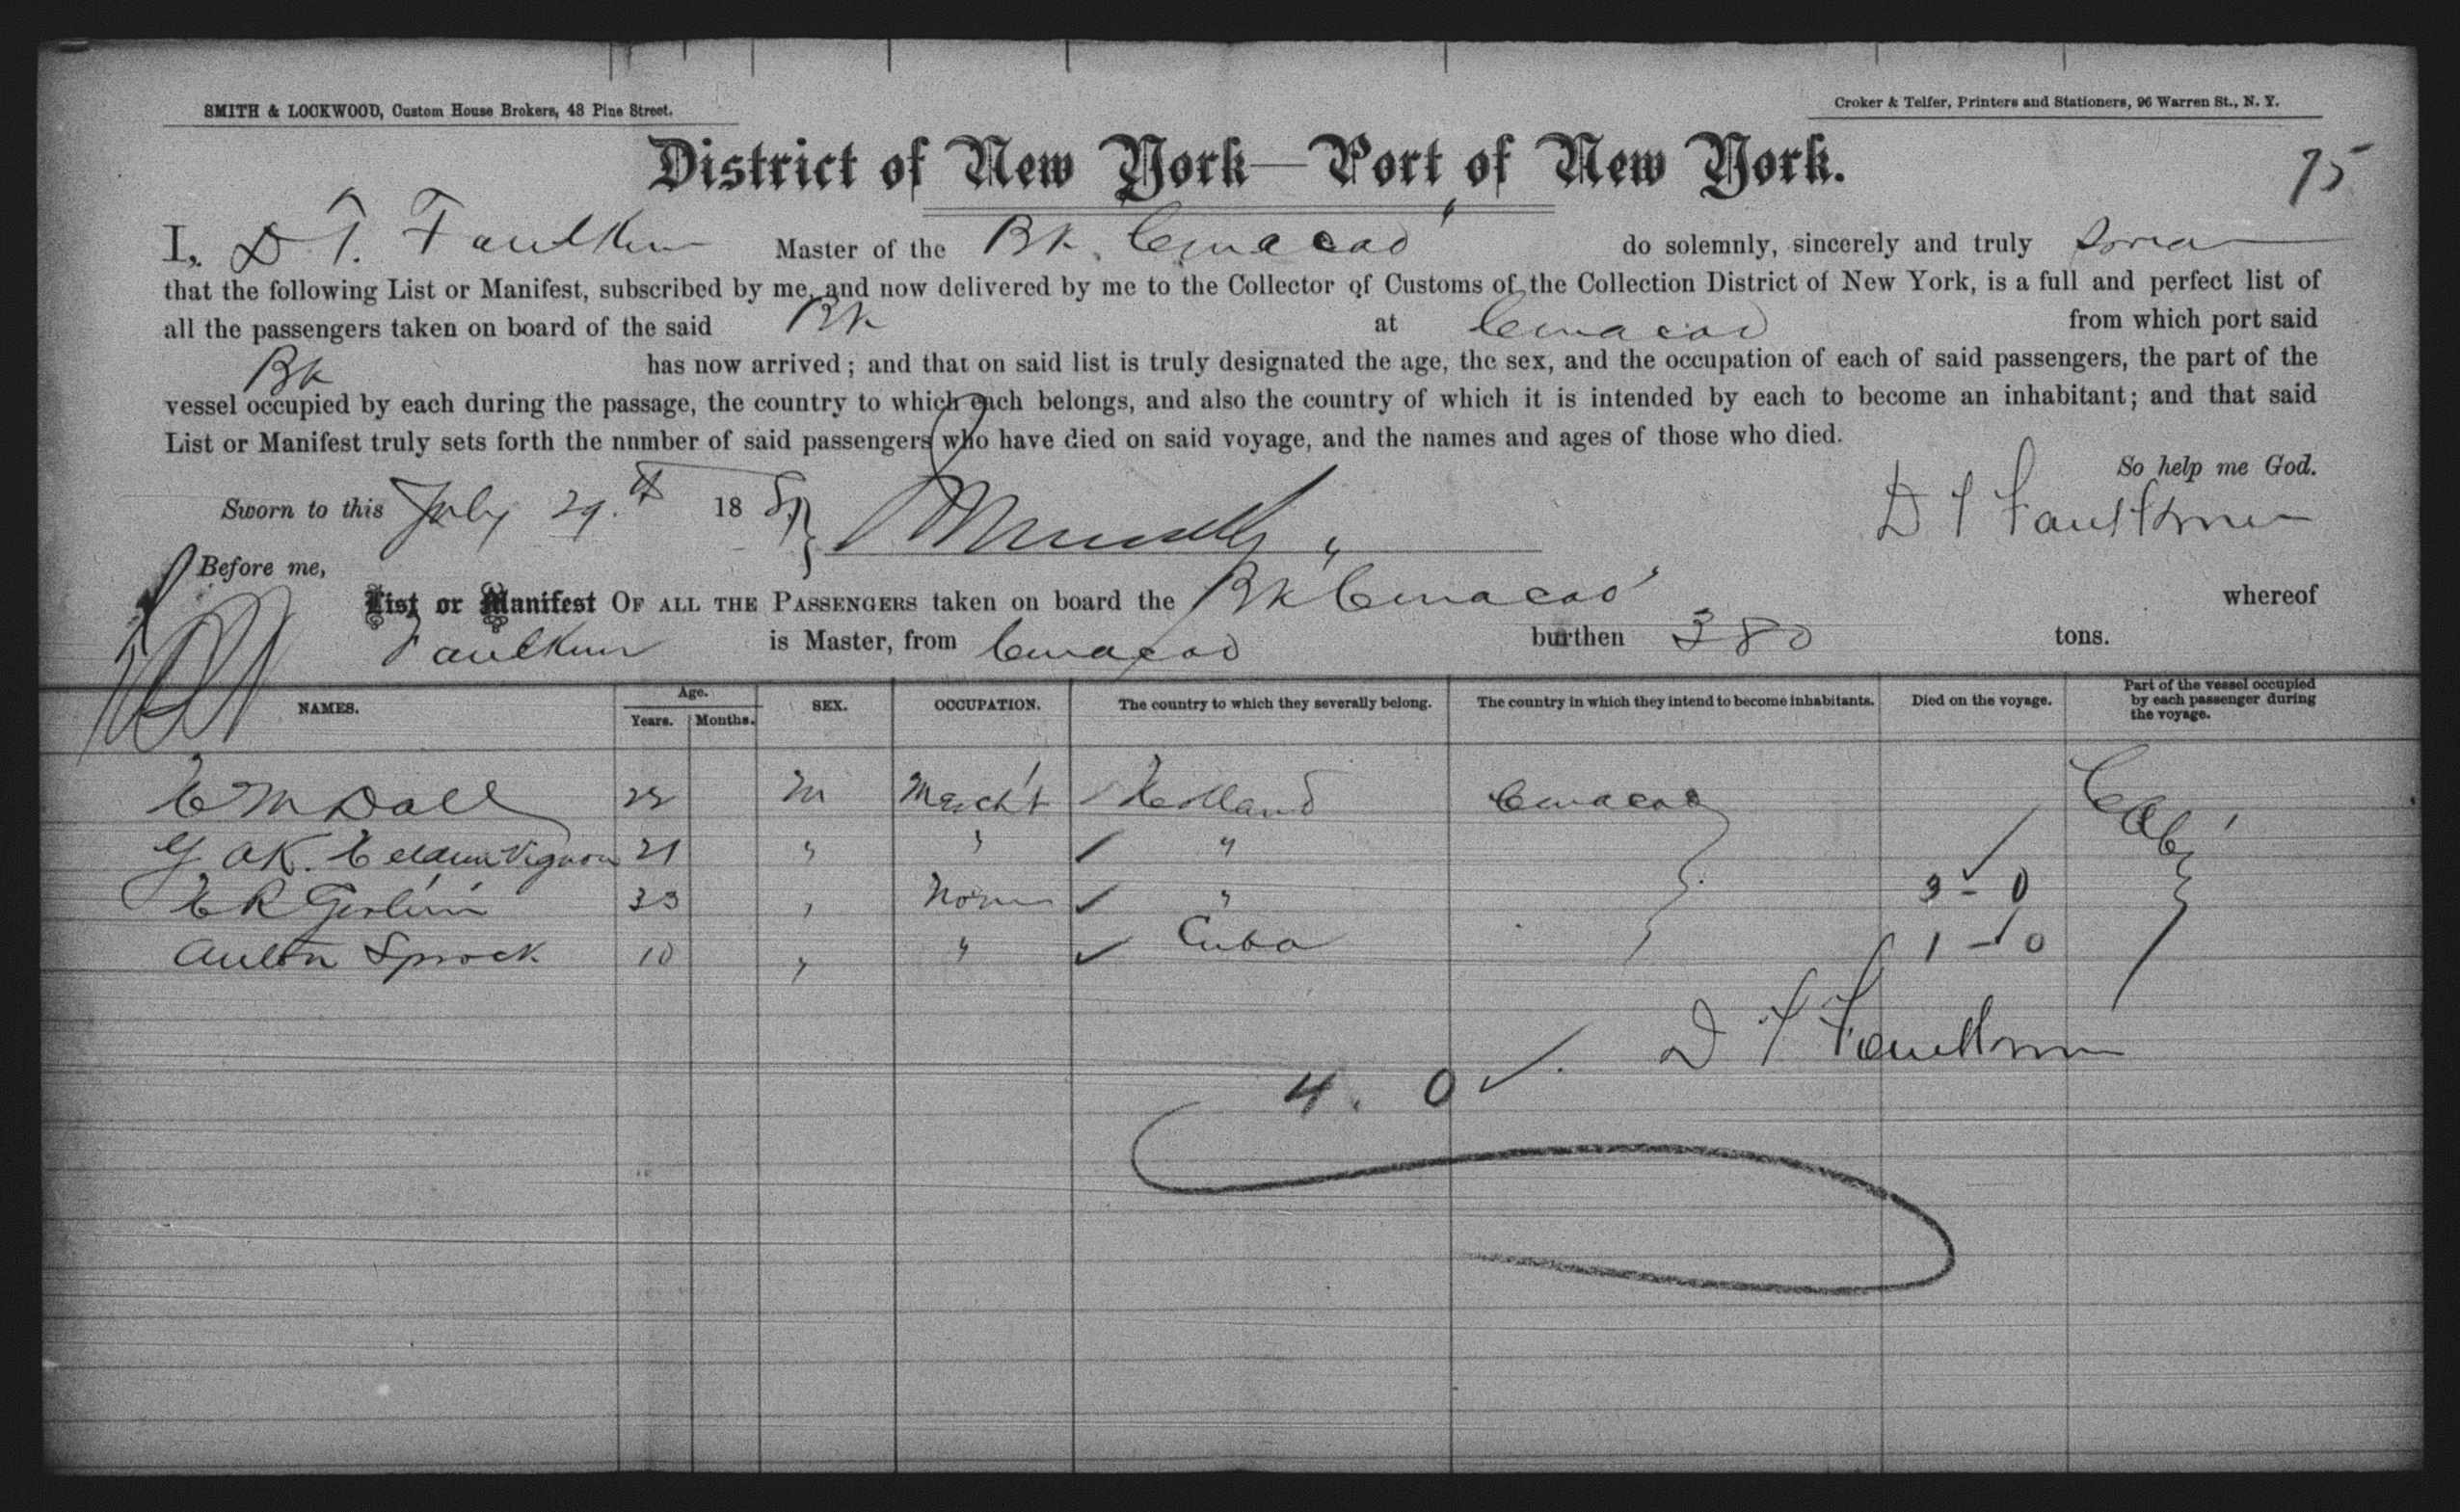 SMITH & LOCKWOOD, Custom House Brokers, 48 Pine Street.
Croker & Telfer, Printers and Stationers, 96 Warren St., N. Y.
District of New York—Port of New York.
75
I, D T. Faulkner Master of the Bk. "Curacao" do solemnly, sincerely and truly swear
that the following List or Manifest, subscribed by me, and now delivered by me to the Collector of Customs of the Collection District of New York, is a full and perfect list of
all the passengers taken on board of the said Bk at Curacao from which port said
Bk has now arrived; and that on said list is truly designated the age, the sex, and the occupation of each of said passengers, the part of the
vessel occupied by each during the passage, the country to which each belongs, and also the country of which it is intended by each to become an inhabitant; and that said
List or Manifest truly sets forth the number of said passengers who have died on said voyage, and the names and ages of those who died.
So help me God.
Sworn to this July 29.th 18 D T Faulkner
Before me,
List or Manifest OF ALL THE PASSENGERS taken on board the Bk "Curacao" whereof
Faulkner is Master, from Curacao burthen 380 tons.
NAMES. Age. Years. Months. SEX. OCCUPATION. The country to which they severally belong. The country in which they intend to become inhabitants. Died on the voyage. Part of the vessel occupied by each passenger during the voyage.
M Dall M Mercht Holland Curacao Cab
21 " " "
R 33 " None " 3 - 0
Sprock 10 " " Cuba 1 - 0
D T Faulkner
4. 0